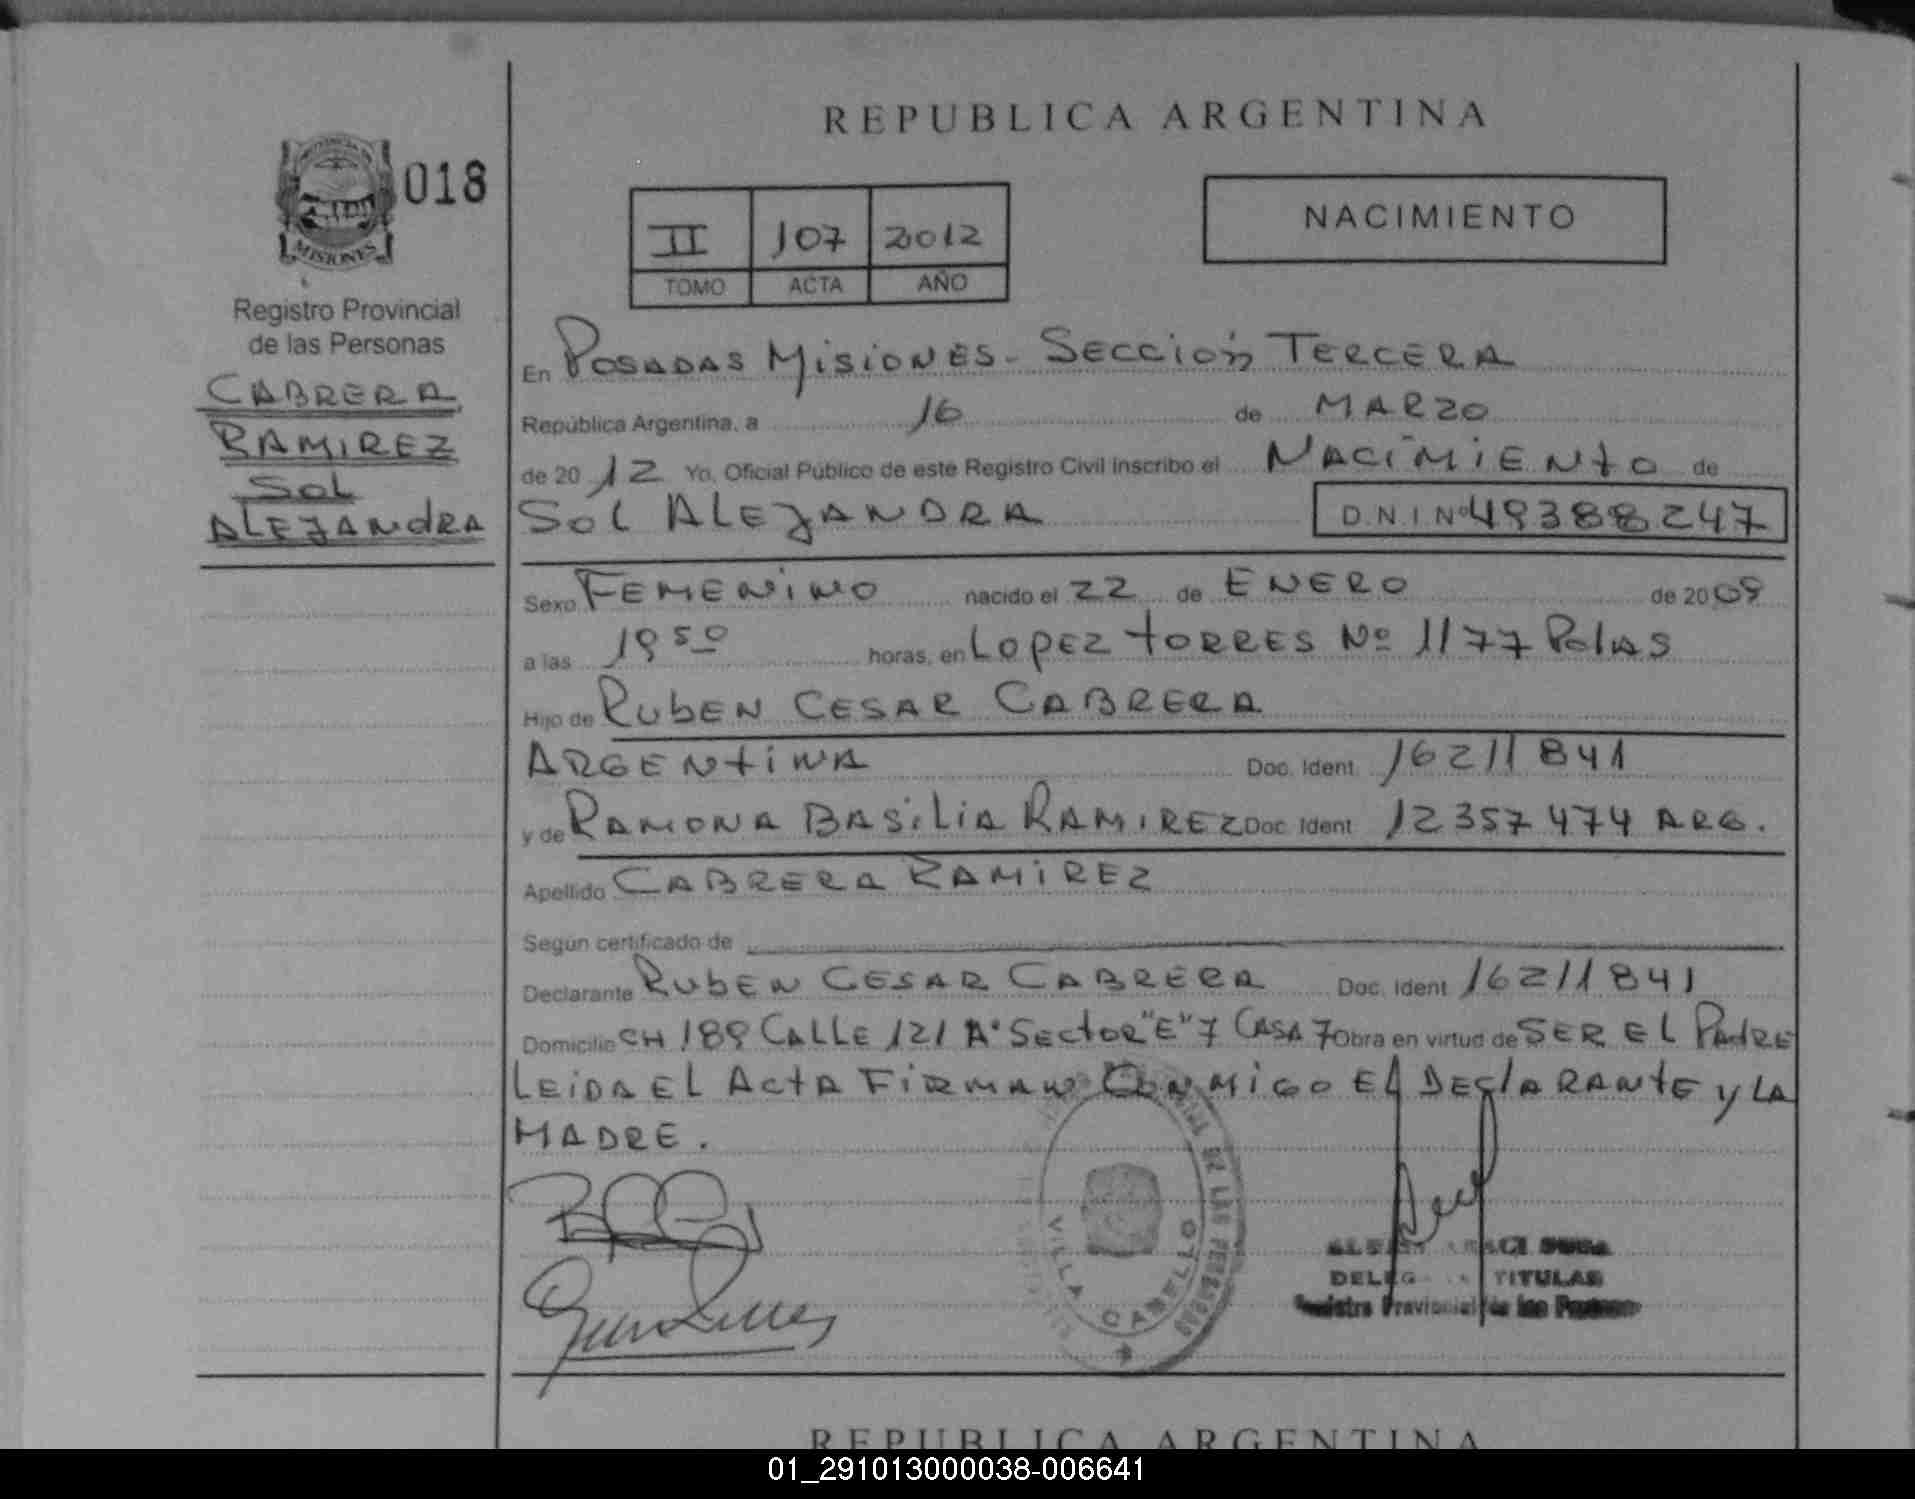 REPUBLICA ARGENTINA
018
MISIONES
Registro Provincial
de las Personas
CABRERA
RAMIREZ
SOL
ALEJANDRA
II 107 2012
TOMO ACTA AÑO
NACIMIENTO
En POSADAS MISIONES - SECCION TERCERA
República Argentina, a 16 de MARZO
de 2012 Yo, Oficial Público de este Registro Civil Inscribo el NACIMIENTO de
SOL ALEJANDRA D.N.I Nº 49388247
Sexo FEMENINO nacido el 22 de ENERO de 2009
a las 19 50 horas, en LOPEZ TORRES Nº 1177 Pdas
Hijo de RUBEN CESAR CABRERA
ARGENTINA Doc. Ident 16211841
y de RAMONA BASILIA RAMIREZ Doc. Ident 12357474 ARG.
Apellido CABRERA RAMIREZ
Según certificado de
Declarante RUBEN CESAR CABRERA Doc. Ident 16211841
Domicilio CH 189 CALLE 121 A° SECTOR "E" 7 CASA 7 Obra en virtud de SER EL PADRE
LEIDA EL ACTA FIRMAN CONMIGO EL DECLARANTE y LA
MADRE.
DE LAS PERSONAS
VILLA CABELLO
TITULAR
Registro Provincial de las Personas
REPUBLICA ARGENTINA
01_291013000038-006641